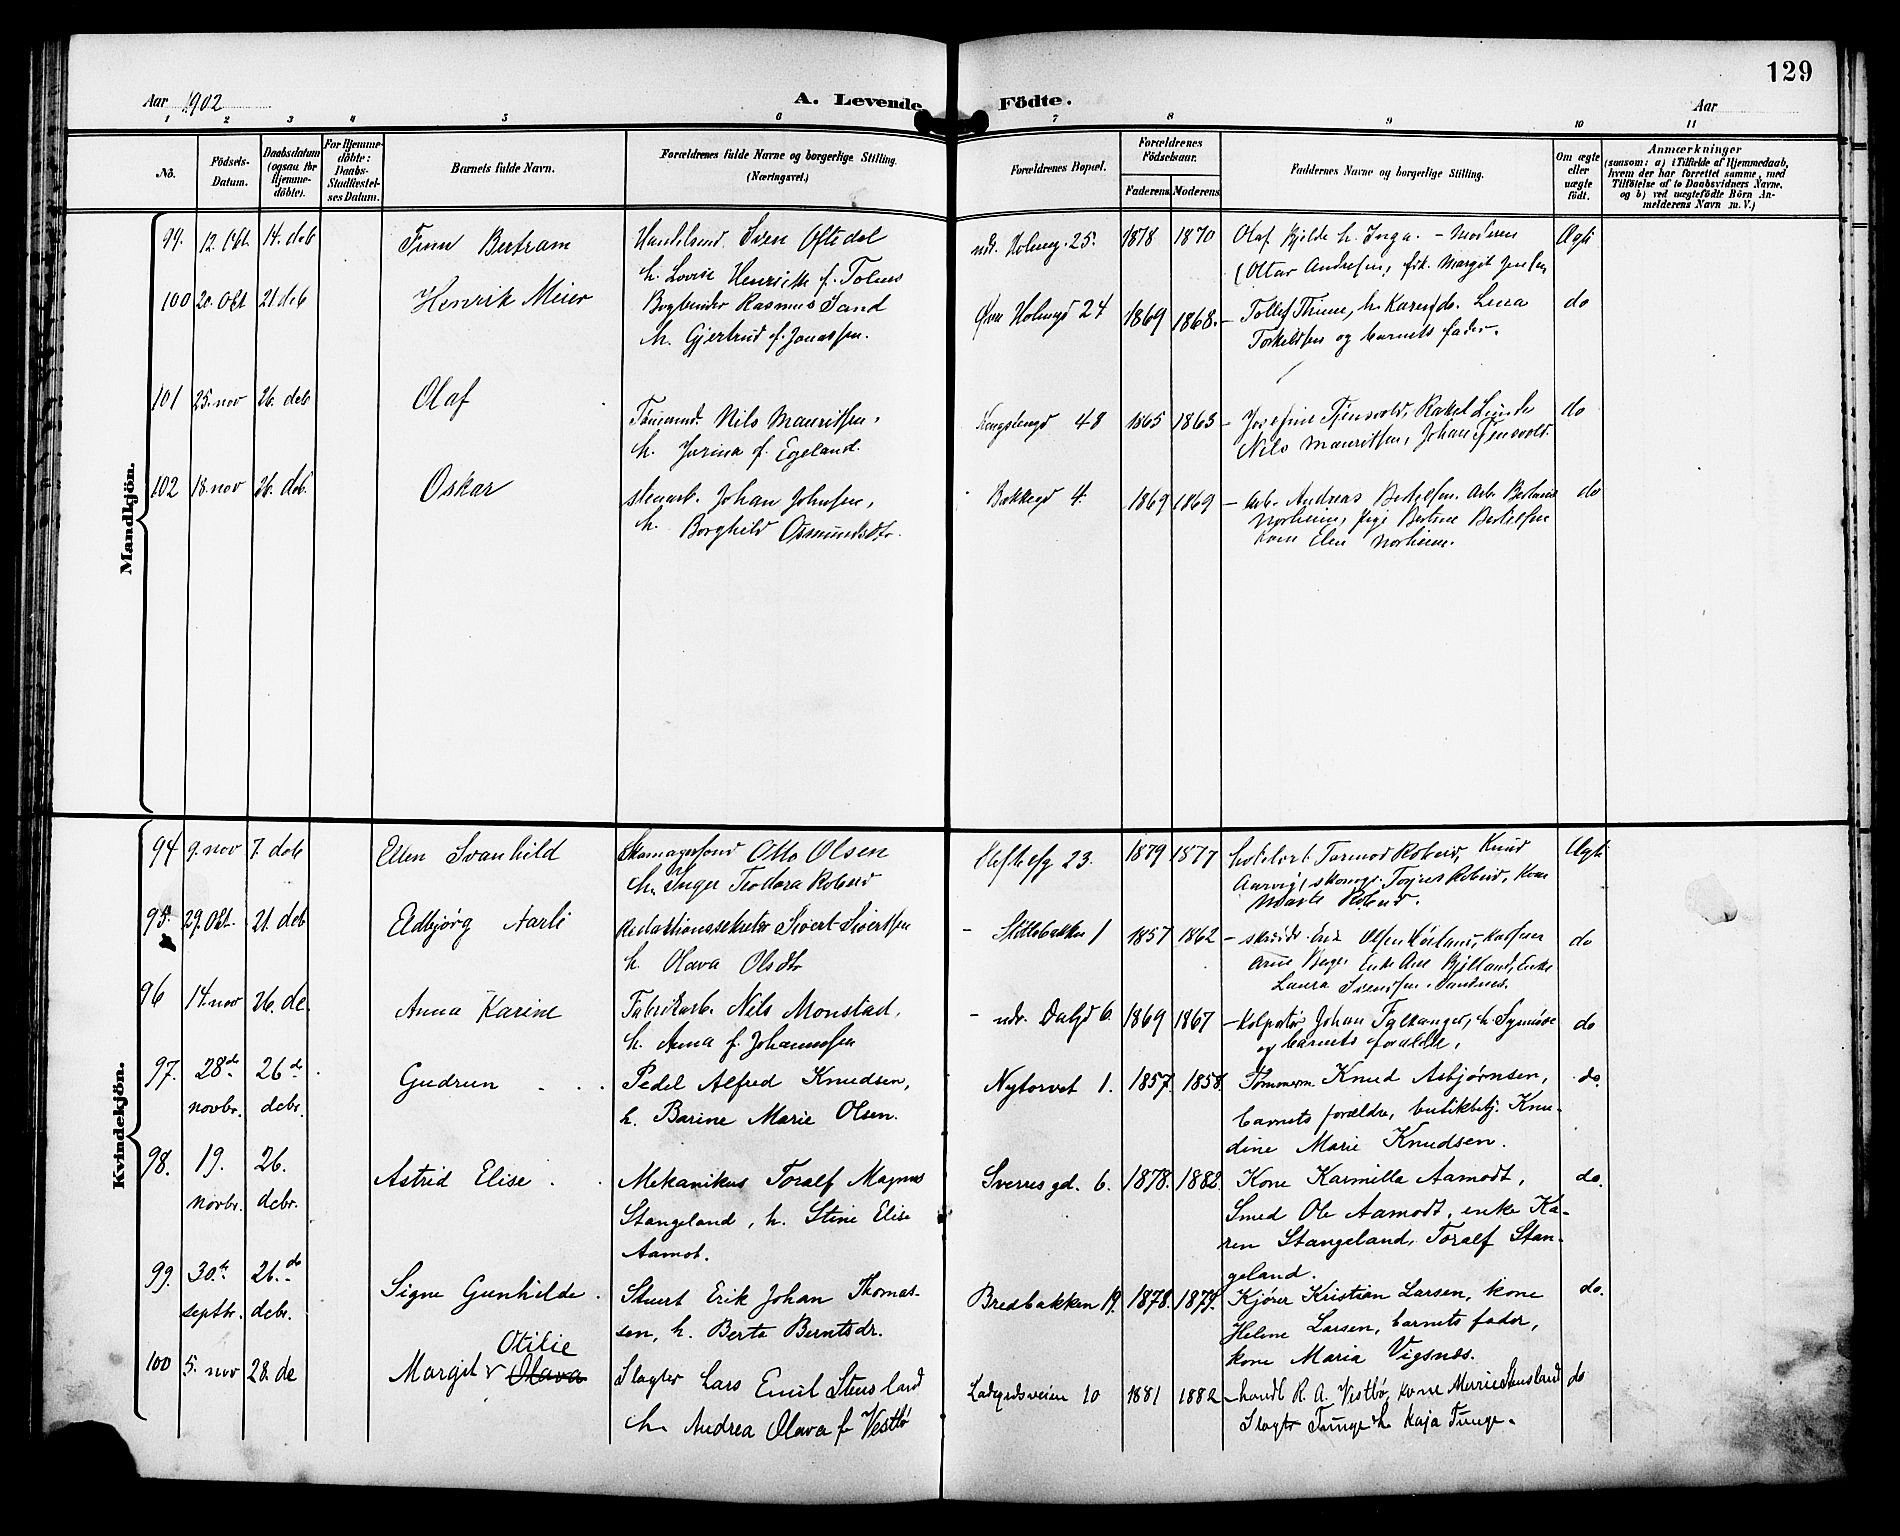 129
Aar 1902
A. Levende Födte.
Aar
1 2 3 4 5 6 7 8 9 10 11
No.
Födsels-Datum.
Daabsdatum (ogsaa for Hjemme-döbte).
For Hjemme-döbte: Daabs-Stadfæstelses Datum.
Barnets fulde Navn.
Forældrenes fulde Navne og borgerlige Stilling. (Næringsvei.)
Forældrenes Bopæl.
Forældrenes Födselsaar.
Faderens. Moderens.
Faddernes Navne og borgerlige Stilling.
Om ægte eller uægte født.
Anmærkninger
(saasom: a) i Tilfælde af Hjemmedaab, hvem der har forrettet samme, med Tilföielse af to Daabsvidners Navne, og b) ved uægtefödte Börn Anmelderens Navn m. V.)
Mandkjön.
99. 12. Okt. 14. deb Finn Bertram Sven Oftedal ndr. Holmeg. 25. 1878 1870 Olaf Kjelde h. Inga. – Moderen Ægte
h. Lovise Henriette f. Tolnes Ottar Andresen, frk. Margit Jensen
100 20. Okt 21 deb Henrik Meier Bogbinder Rasmus Sand Øvre Holmegd 24 1869 1868. – Tollef Thime, h. Karen, do. Lena do
h. Gjertrud f. Jonassen. Torkeldsen og barnets fader.
101 25. nov 26. deb Olaf Nils Mauritsen, Kongstengd 48 1865 1863 – Josefine Tjensvold, Rakel Lunde do
h. Jorina f. Egeland. Nils Mauritsen, Johan Tjensvold.
102 18. nov 26. deb. Oskar stenarb. Johan Johnsen, Bakkegd 4. 1869 1869 – Arb. Andreas Bertelsen. Arb. do
h. Borghild Osmundsdtr. Norheim, Pige Bertine Bertelsen
kone Elen Norheim.
Kvindekjön.
94 9. nov 7. deb Ellen Svanhild Skomagersvend Otto Olsen 23. 1879 1877 Tormod Roberd, Knud Ægte
h. Inger Teodora Roberd Aarvig, skomag. Roberd, kone
Marte Roberd.
95. 29. Okt. 21. deb Edbjørg Aarli Redaktionssekretær Sivert Sivertsen – Støttebakken 1 1857 1862 – do
h. Olava Olsdtr Arne Enke Ane Bjelland, Enke
Laura Svendsen. Sandnes.
96 14. nov 26. de. Anna Karine Fabrikarb. Nils Monstad, – ndr. Dalgd 6. 1869 1867 – Kolportør Johan Falkanger, h. Synnøve do
h. Anna f. Johannesen og barnets forældre.
97. 28de 26de Gudrun Pedel Alfred Knudsen, Nytorvet 1. 1857. 1858. Tømmerm. Knud Asbjørnsen, do.
novbr. debr. h. Barine Marie Olsen. barnets forældre, butikbetj. Knu-
dine Marie Knudsen.
98. 19. 26. Astrid Elise Mekanikus Toralf Magnus Sverres gd. 6. 1878. 1882. Kone Karmilla Aamodt, do.
novbr. debr. Stangeland, h. Stine Elise Smed Ole Aamodt, enke Ka-
Aamot. ren Stangeland, Toralf Stan-
geland.
99. 30te 26.de Signe Gunhilde Stuert Erik Johan Thomas- Bredbakken 19. 1878. 1879. Kjører Kristian Larsen, kone do.
septbr. debr. sen, h. Berte Berntsdr. Helene Larsen, barnets fader,
kone Maria Vigsnes.
Otilie
100 5. nov 28. de Margit v Olava Slagter Lars Emil Stensland Ladegårdsveien 10 1881 1882 – handl R. A. Vestbø, kone Marie Stensland do
h. Andrea Olava f Vestbø Slagter Tunge h Kaja Tunge.